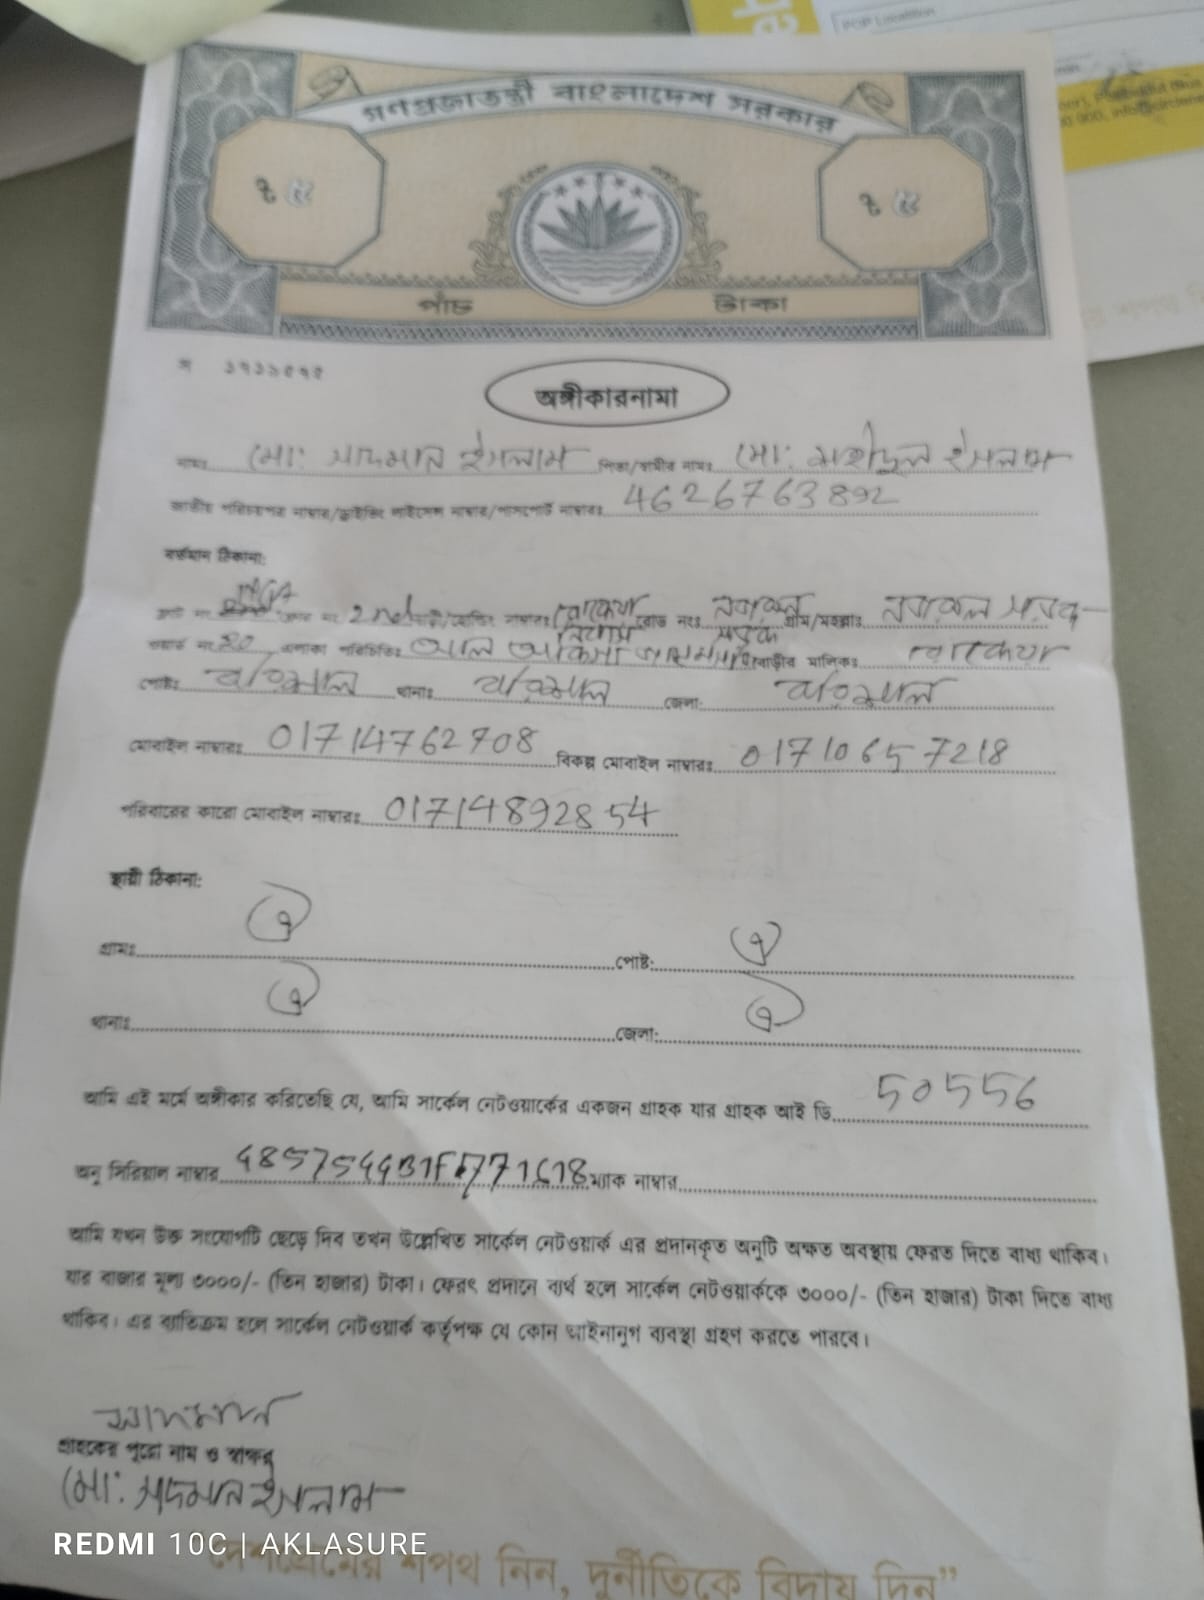 গণপ্রজাতন্ত্রী বাংলাদেশ সরকার
৳ ৫ ৳ ৫
পাঁচ টাকা
অঙ্গীকারনামা
নামঃ মো: সাদমান ইসলাম পিতা/স্বামীর নামঃ মো: মহীদুল ইসলাম
জাতীয় পরিচয়পত্র নাম্বার/ড্রাইভিং লাইসেন্স নাম্বার/পাসপোর্ট নাম্বারঃ 4626763892
বর্তমান ঠিকানা:
2nd রোড নংঃ গ্রাম/মহল্লাঃ
ওয়ার্ড নং 20 এলাকা পরিচিতিঃ বাড়ীর মালিকঃ
পোষ্টঃ বরিশাল থানাঃ বরিশাল জেলা: বরিশাল
মোবাইল নাম্বারঃ 01714762708 বিকল্প মোবাইল নাম্বারঃ 01710657218
পরিবারের কারো মোবাইল নাম্বারঃ 01714892854
স্থায়ী ঠিকানা:
গ্রামঃ ঐ পোষ্ট: ঐ
থানাঃ ঐ জেলা: ঐ
আমি এই মর্মে অঙ্গীকার করিতেছি যে, আমি সার্কেল নেটওয়ার্কের একজন গ্রাহক যার গ্রাহক আই ডি 50556
অনু সিরিয়াল নাম্বার ম্যাক নাম্বার
আমি যখন উক্ত সংযোগটি ছেড়ে দিব তখন উল্লেখিত সার্কেল নেটওয়ার্ক এর প্রদানকৃত অনুটি অক্ষত অবস্থায় ফেরত দিতে বাধ্য থাকিব।
যার বাজার মূল্য ৩০০০/- (তিন হাজার) টাকা। ফেরৎ প্রদানে ব্যর্থ হলে সার্কেল নেটওয়ার্ককে ৩০০০/- (তিন হাজার) টাকা দিতে বাধ্য
থাকিব। এর ব্যতিক্রম হলে সার্কেল নেটওয়ার্ক কর্তৃপক্ষ যে কোন আইনানুগ ব্যবস্থা গ্রহণ করতে পারবে।
সাদমান
গ্রাহকের পুরো নাম ও স্বাক্ষর
মো: সাদমান ইসলাম
REDMI 10C | AKLASURE
শপথ নিন, দুর্নীতিকে বিদায় দিন”